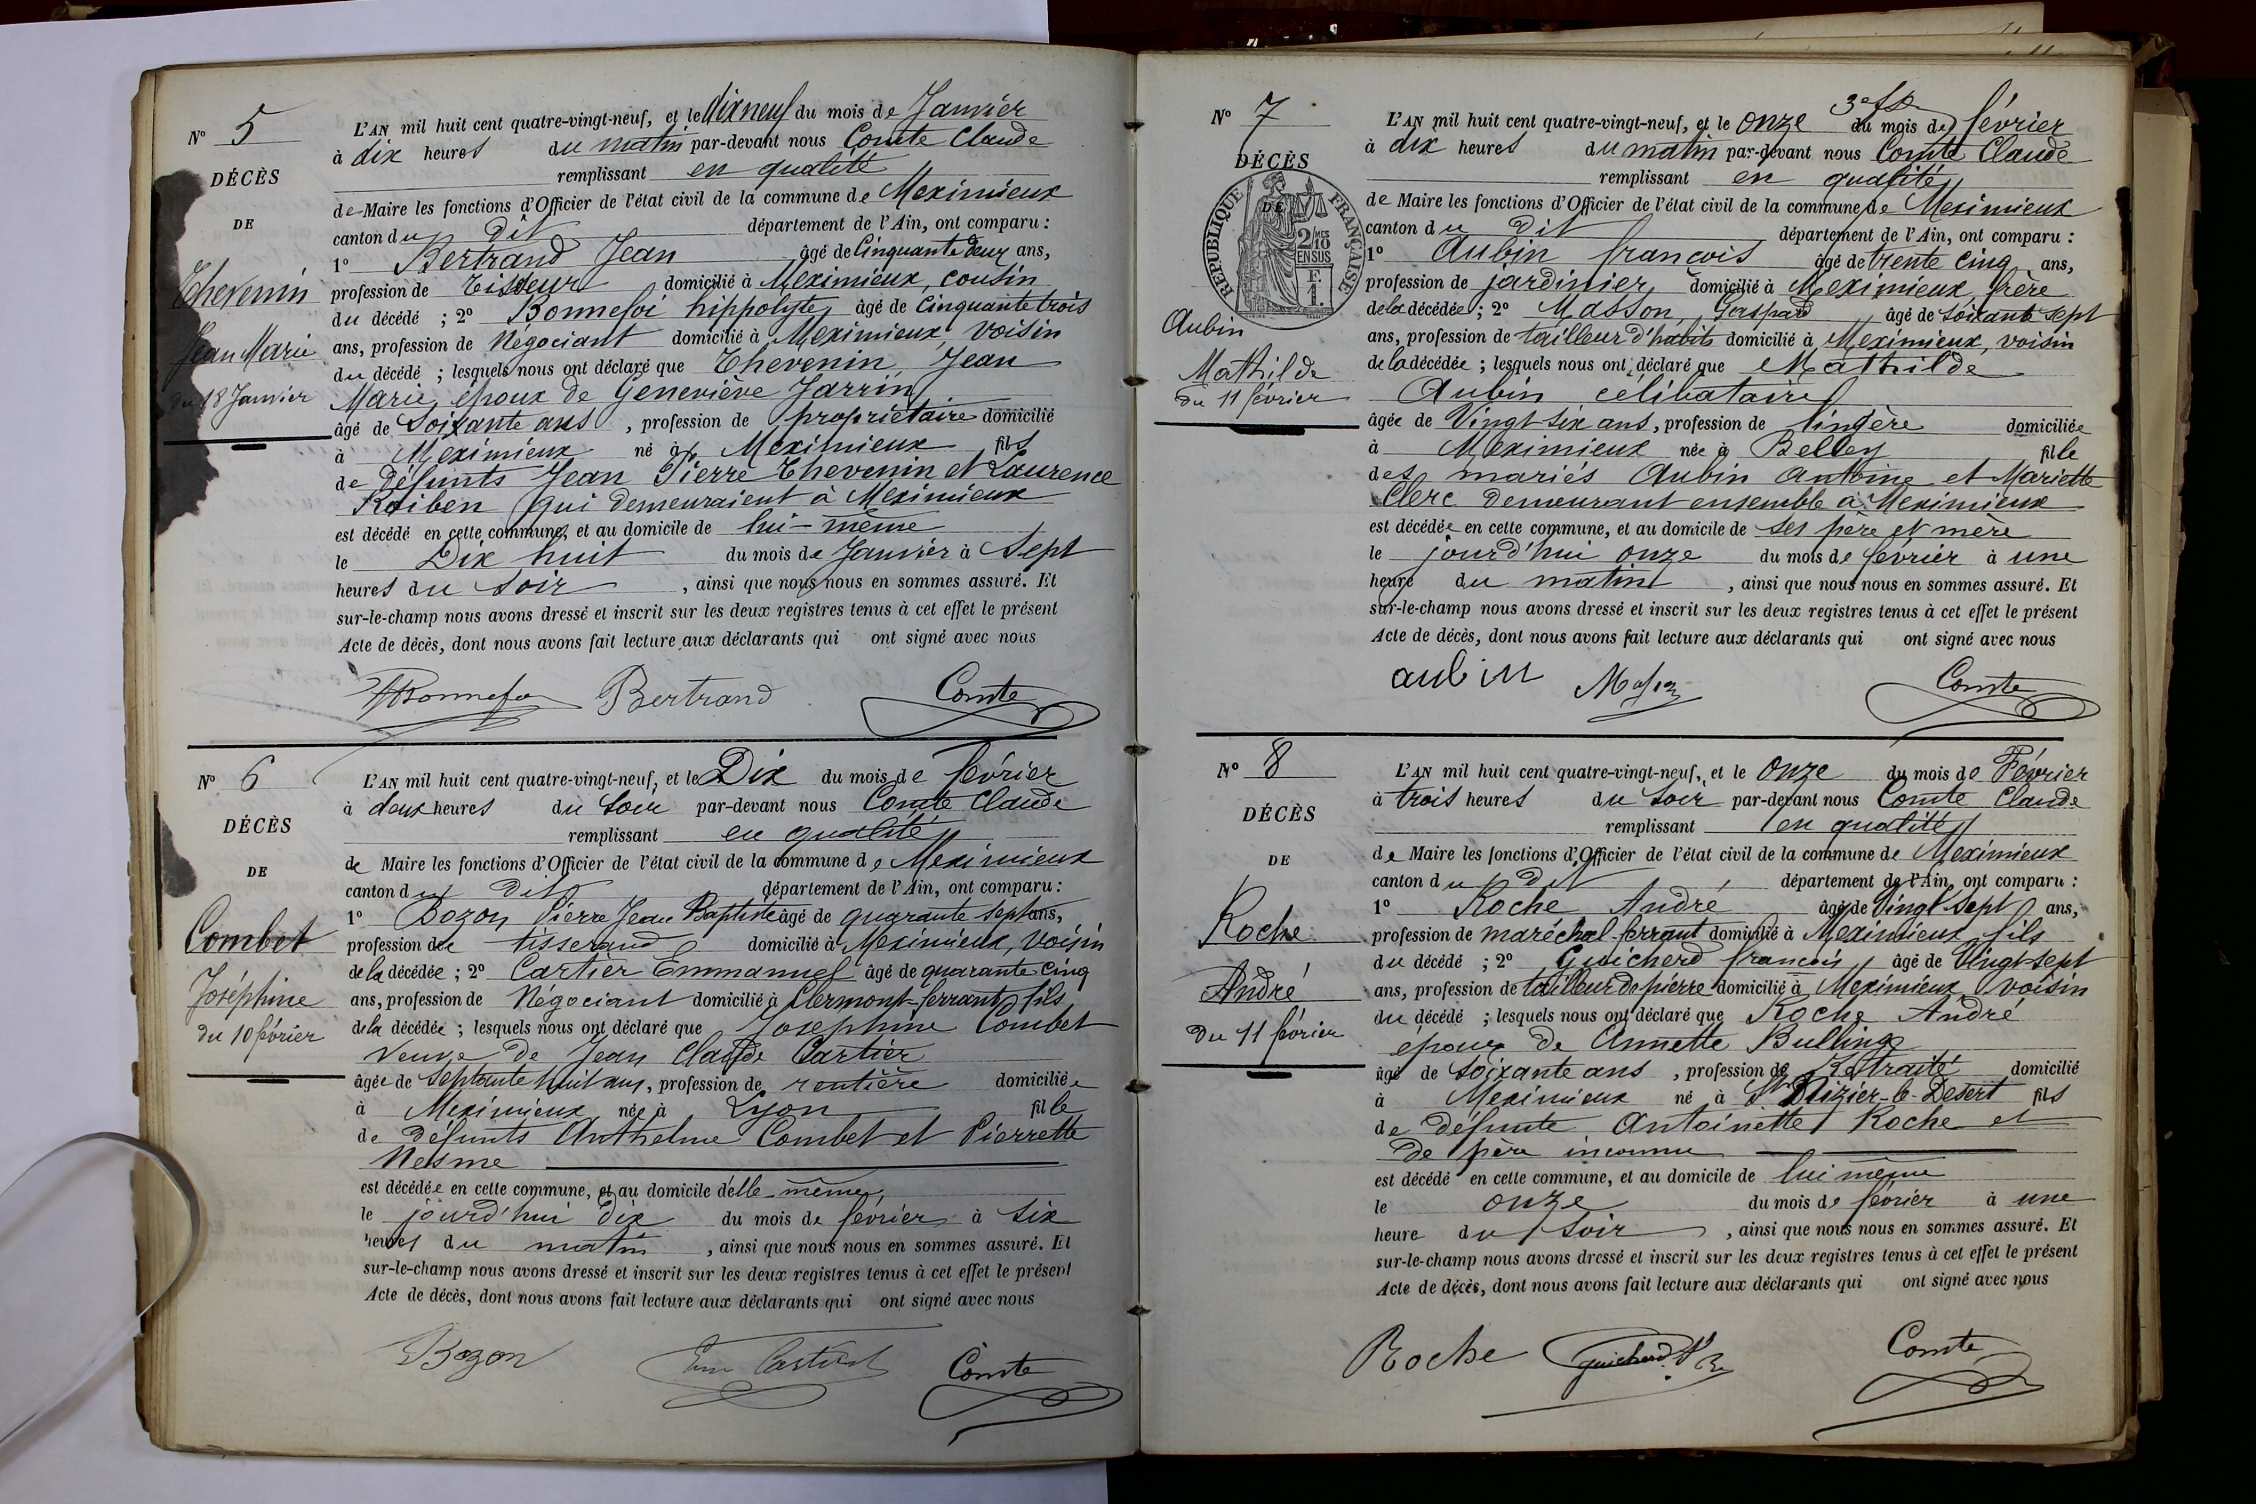 N° 5
DÉCÈS
DE
Thevenin
Jean Marie
du 18 Janvier
L'AN mil huit cent quatre-vingt-neuf, et le dix neuf du mois de Janvier
à dix heures du matin par-devant nous Comte Claude
remplissant en qualité
de Maire les fonctions d'Officier de l'état civil de la commune de Meximieux
canton du dit département de l'Ain, ont comparu :
1° Bertrand Jean âgé de Cinquante deux ans,
profession de Tisseur domicilié à Meximieux, cousin
du décédé ; 2° Bonnefoi hippolyte âgé de Cinquante trois
ans, profession de Négociant domicilié à Meximieux, voisin
du décédé ; lesquels nous ont déclaré que Thevenin, Jean
Marie, époux de Geneviève Jarrin
âgé de Soixante ans, profession de propriétaire domicilié
à Meximieux né à Meximieux fils
de défunts Jean Pierre Thevenin et Laurence
Roiben qui demeuraient à Meximieux
est décédé en cette commune, et au domicile de lui-même
le Dix huit du mois de Janvier à Sept
heures du Soir, ainsi que nous nous en sommes assuré. Et
sur-le-champ nous avons dressé et inscrit sur les deux registres tenus à cet effet le présent
Acte de décès, dont nous avons fait lecture aux déclarants qui ont signé avec nous
HBonnefoi Bertrand Comte
N° 6
DÉCÈS
DE
Combet
Joséphine
du 10 février
L'AN mil huit cent quatre-vingt-neuf, et le Dix du mois de février
à deux heures du Soir par-devant nous Comte Claude
remplissant en qualité
de Maire les fonctions d'Officier de l'état civil de la commune de Meximieux
canton du Dit département de l'Ain, ont comparu :
1° Bozon Pierre Jean Baptiste âgé de quarante sept ans,
profession de tisserand domicilié à Meximieux, voisin
de la décédée ; 2° Cartier Emmanuel âgé de quarante cinq
ans, profession de Négociant domicilié à Clermont-ferrant, fils
de la décédée ; lesquels nous ont déclaré que Josephine Combet
Veuve de Jean Claude Cartier
âgée de Septante huit ans, profession de rentière domiciliée
à Meximieux née à Lyon fille
de défunts Anthelme Combet et Pierrette
Nesme
est décédée en cette commune, et au domicile d'elle-même,
le jourd'hui dix du mois de février à six
heures du matin, ainsi que nous nous en sommes assuré. Et
sur-le-champ nous avons dressé et inscrit sur les deux registres tenus à cet effet le présent
Acte de décès, dont nous avons fait lecture aux déclarants qui ont signé avec nous
Bozon Em Cartier Comte
3e
N° 7
DÉCÈS
DE
RÉPUBLIQUE FRANÇAISE
2 MES
10
EN SUS
F.
1.
Aubin
Mathilde
du 11 février
L'AN mil huit cent quatre-vingt-neuf, et le onze du mois de février
à dix heures du matin par-devant nous Comte Claude
remplissant en qualité
de Maire les fonctions d'Officier de l'état civil de la commune de Meximieux
canton du Dit département de l'Ain, ont comparu :
1° Aubin francois âgé de trente cinq ans,
profession de jardinier domicilié à Meximieux, frère
de la décédée ; 2° Masson, Gaspard âgé de soixante sept
ans, profession de tailleur d'habits domicilié à Meximieux, voisin
de la décédée ; lesquels nous ont déclaré que Mathilde
Aubin célibataire
âgée de Vingt six ans, profession de lingère domiciliée
à Meximieux née à Belley fille
des mariés Aubin Antoine et Mariette
Clerc demeurant ensemble à Meximieux
est décédée en cette commune, et au domicile de ses père et mère
le jourd'hui onze du mois de février à une
heure du matin, ainsi que nous nous en sommes assuré. Et
sur-le-champ nous avons dressé et inscrit sur les deux registres tenus à cet effet le présent
Acte de décès, dont nous avons fait lecture aux déclarants qui ont signé avec nous
aubin Masson Comte
N° 8
DÉCÈS
DE
Roche
André
Du 11 février
L'AN mil huit cent quatre-vingt-neuf, et le onze du mois de Février
à trois heures du Soir par-devant nous Comte Claude
remplissant en qualité
de Maire les fonctions d'Officier de l'état civil de la commune de Meximieux
canton du Dit département de l'Ain, ont comparu :
1° Roche André âgé de Vingt Sept ans,
profession de maréchal-ferrant domicilié à Meximieux, fils
du décédé ; 2° Guicherd francois, âgé de Vingt-sept
ans, profession de tailleur de pierre domicilié à Meximieux, voisin
du décédé ; lesquels nous ont déclaré que Roche André
époux de Annette Bullinge
âgé de soixante ans, profession de Retraité domicilié
à Meximieux né à St Dizier-le-Desert fils
de défunte Antoinette Roche et
De père inconnu
est décédé en cette commune, et au domicile de lui même
le onze du mois de février à une
heure du Soir, ainsi que nous nous en sommes assuré. Et
sur-le-champ nous avons dressé et inscrit sur les deux registres tenus à cet effet le présent
Acte de décès, dont nous avons fait lecture aux déclarants qui ont signé avec nous
Roche guicherd Comte